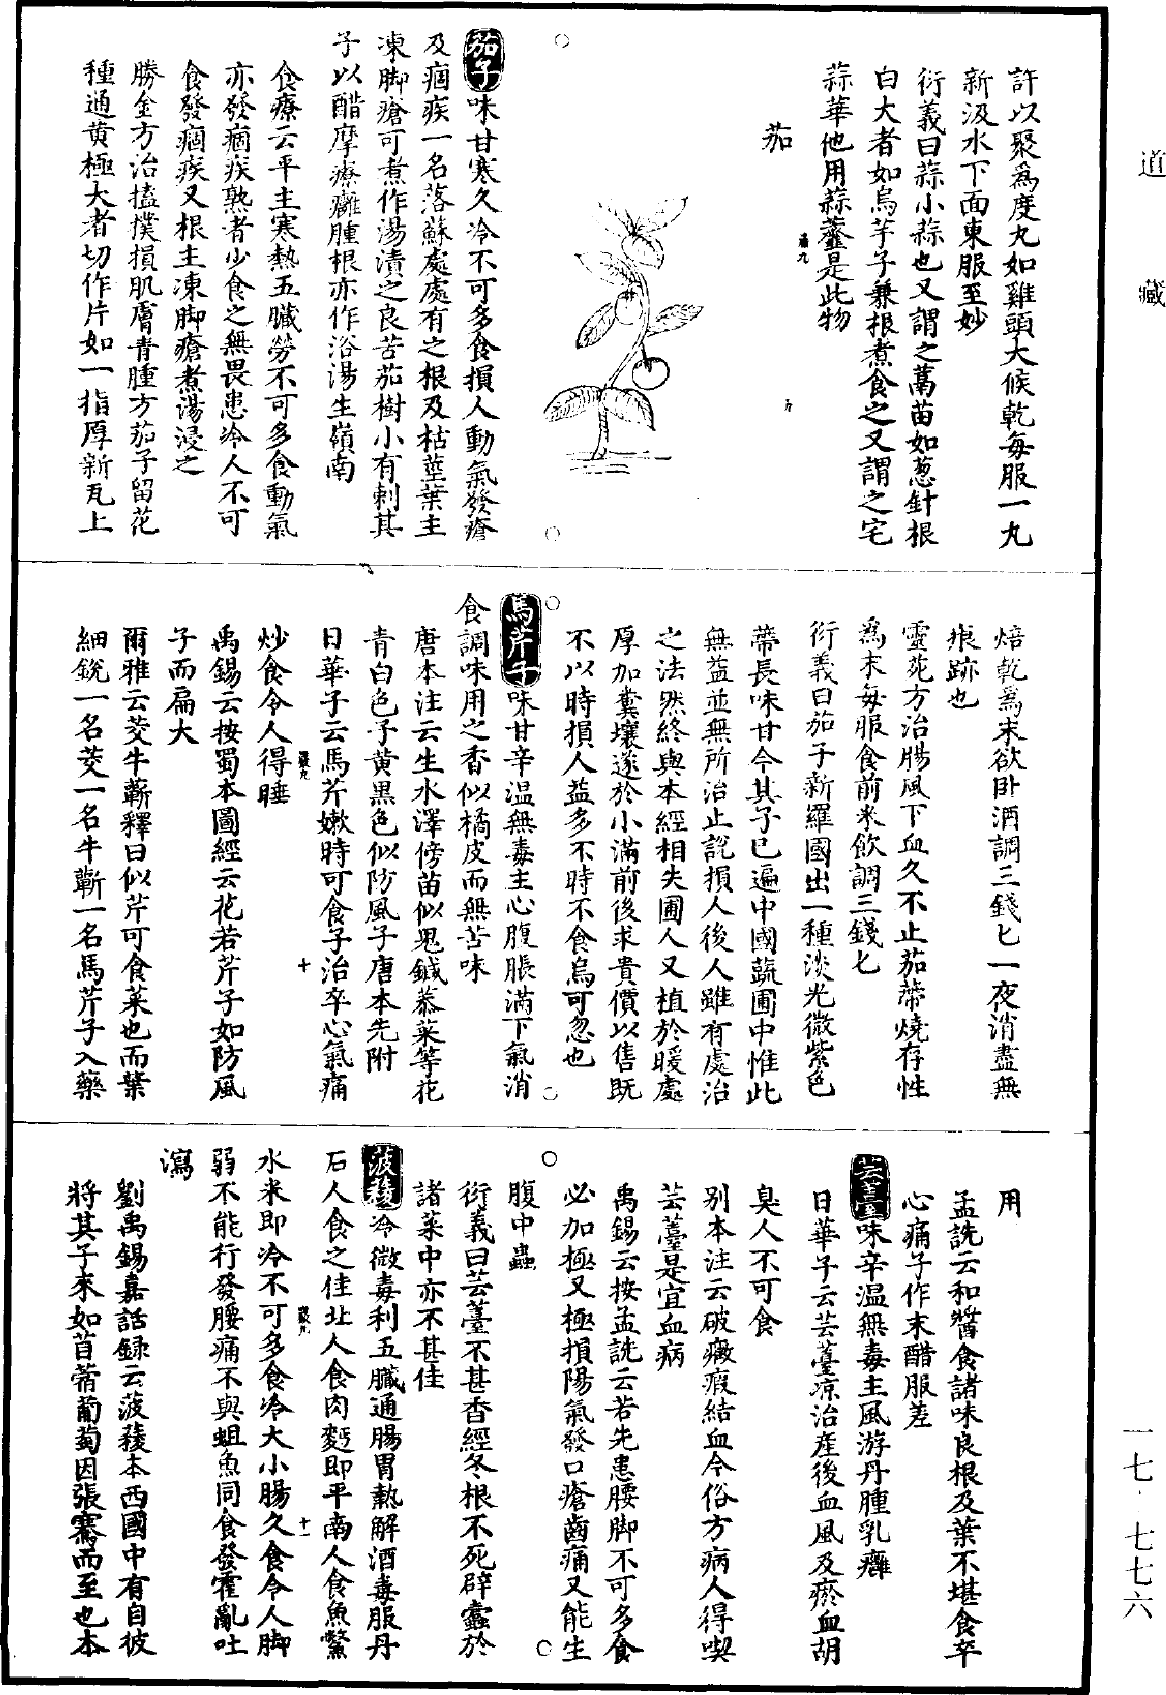 道藏
許以聚爲度丸如雞頭大候乾每服一丸
新汲水下面東服至妙
衍義曰蒜小蒜也又謂之蒚苗如葱針根
白大者如烏芋子兼根煮食之又謂之宅
蒜華他用蒜虀是此物
茄
茄子味甘寒久冷不可多食損人動氣發瘡
及痼疾一名落蘇處處有之根及枯莖葉主
凍脚瘡可煮作湯漬之良苦茄樹小有刺其
子以醋摩療癰腫根亦作浴湯生嶺南
食療云平主寒熱五臟勞不可多食動氣
亦發痼疾熟者少食之無畏患冷人不可
食發痼疾又根主凍脚瘡煮湯浸之
勝金方治搕撲損肌膚青腫方茄子留花
種通黄極大者切作片如一指厚新瓦上
焙乾爲末欲卧酒調三錢匕一夜消盡無
痕跡也
靈苑方治腸風下血久不止茄蔕燒存性
爲末每服食前米飲調三錢匕
衍義曰茄子新羅國出一種淡光微紫色
蔕長味甘今其子已遍中國蔬圃中惟此
無益並無所治止說損人後人雖有處治
之法然終與本經相失圃人又植於暖處
厚加糞壤遂於小滿前後求貴價以售既
不以時損人益多不時不食烏可忽也
馬芹子味甘辛温無毒主心腹脹滿下氣消
食調味用之香似橘皮而無苦味
唐本注云生水澤傍苗似鬼鍼菾菜等花
青白色子黄黑色似防風子唐本先附
日華子云馬芹嫩時可食子治卒心氣痛
炒食令人得睡
禹錫云按蜀本圖經云花若芹子如防風
子而扁大
爾雅云茭牛蘄釋曰似芹可食菜也而葉
細銳一名茭一名牛蘄一名馬芹子入藥
用
孟詵云和醬食諸味良根及葉不堪食卒
心痛子作末醋服差
芸薹味辛温無毒主風游丹腫乳癰
日華子云芸薹凉治產後血風及瘀血胡
臭人不可食
别本注云破癥瘕結血今俗方病人得喫
芸薹是宜血病
禹錫云按孟詵云若先患腰脚不可多食
必加極又極損陽氣發口瘡齒痛又能生
腹中蟲
衍義曰芸薹不甚香經冬根不死辟蠹於
諸菜中亦不甚佳
菠薐冷微毒利五臟通腸胃熱解酒毒服丹
石人食之佳北人食肉麪即平南人食魚鱉
水米即冷不可多食冷大小腸久食令人脚
弱不能行發腰痛不與蛆魚同食發霍亂吐
瀉
劉禹錫嘉話録云菠薐本西國中有自彼
將其子來如苜蓿葡萄因張騫而至也本
一七·七七六